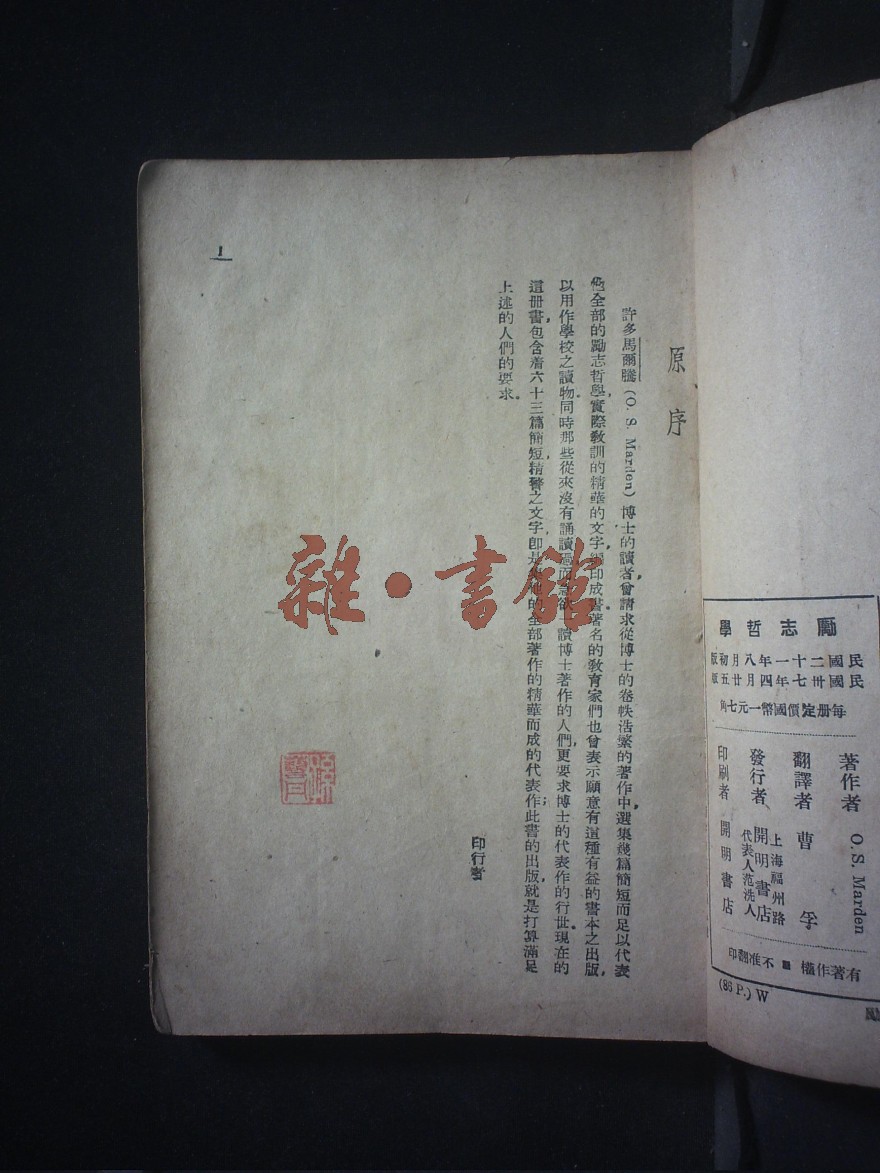 勵志哲學
民國二十一年八月初版
民國卅七年四月廿五版
每册定價國幣一元七角
著作者 O. S. Marden
翻譯者 曹孚
發行者 開明書店
上海福州路
代表人范洗人
印刷者 開明書店
有著作權 ■ 不准翻印
(86 P.) W
原序
許多馬爾騰(O. S. Marden)博士的讀者，曾請求從博士的卷帙浩繁的著作中，選集幾篇簡短而足以代表
他全部的勵志哲學，實際教訓的精華的文字，編印成書。著名的教育家們也曾表示願意有這種有益的書本之出版，
以用作學校之讀物。同時那些從來沒有誦讀過而急欲一讀博士著作的人們，更要求博士的代表作的行世。現在的
這册書包含着六十三篇簡短，精警之文字，卽是他的全部著作的精華而成的代表作；此書的出版，就是打算滿足
上述的人們的要求。
印行者
1
雜·書館